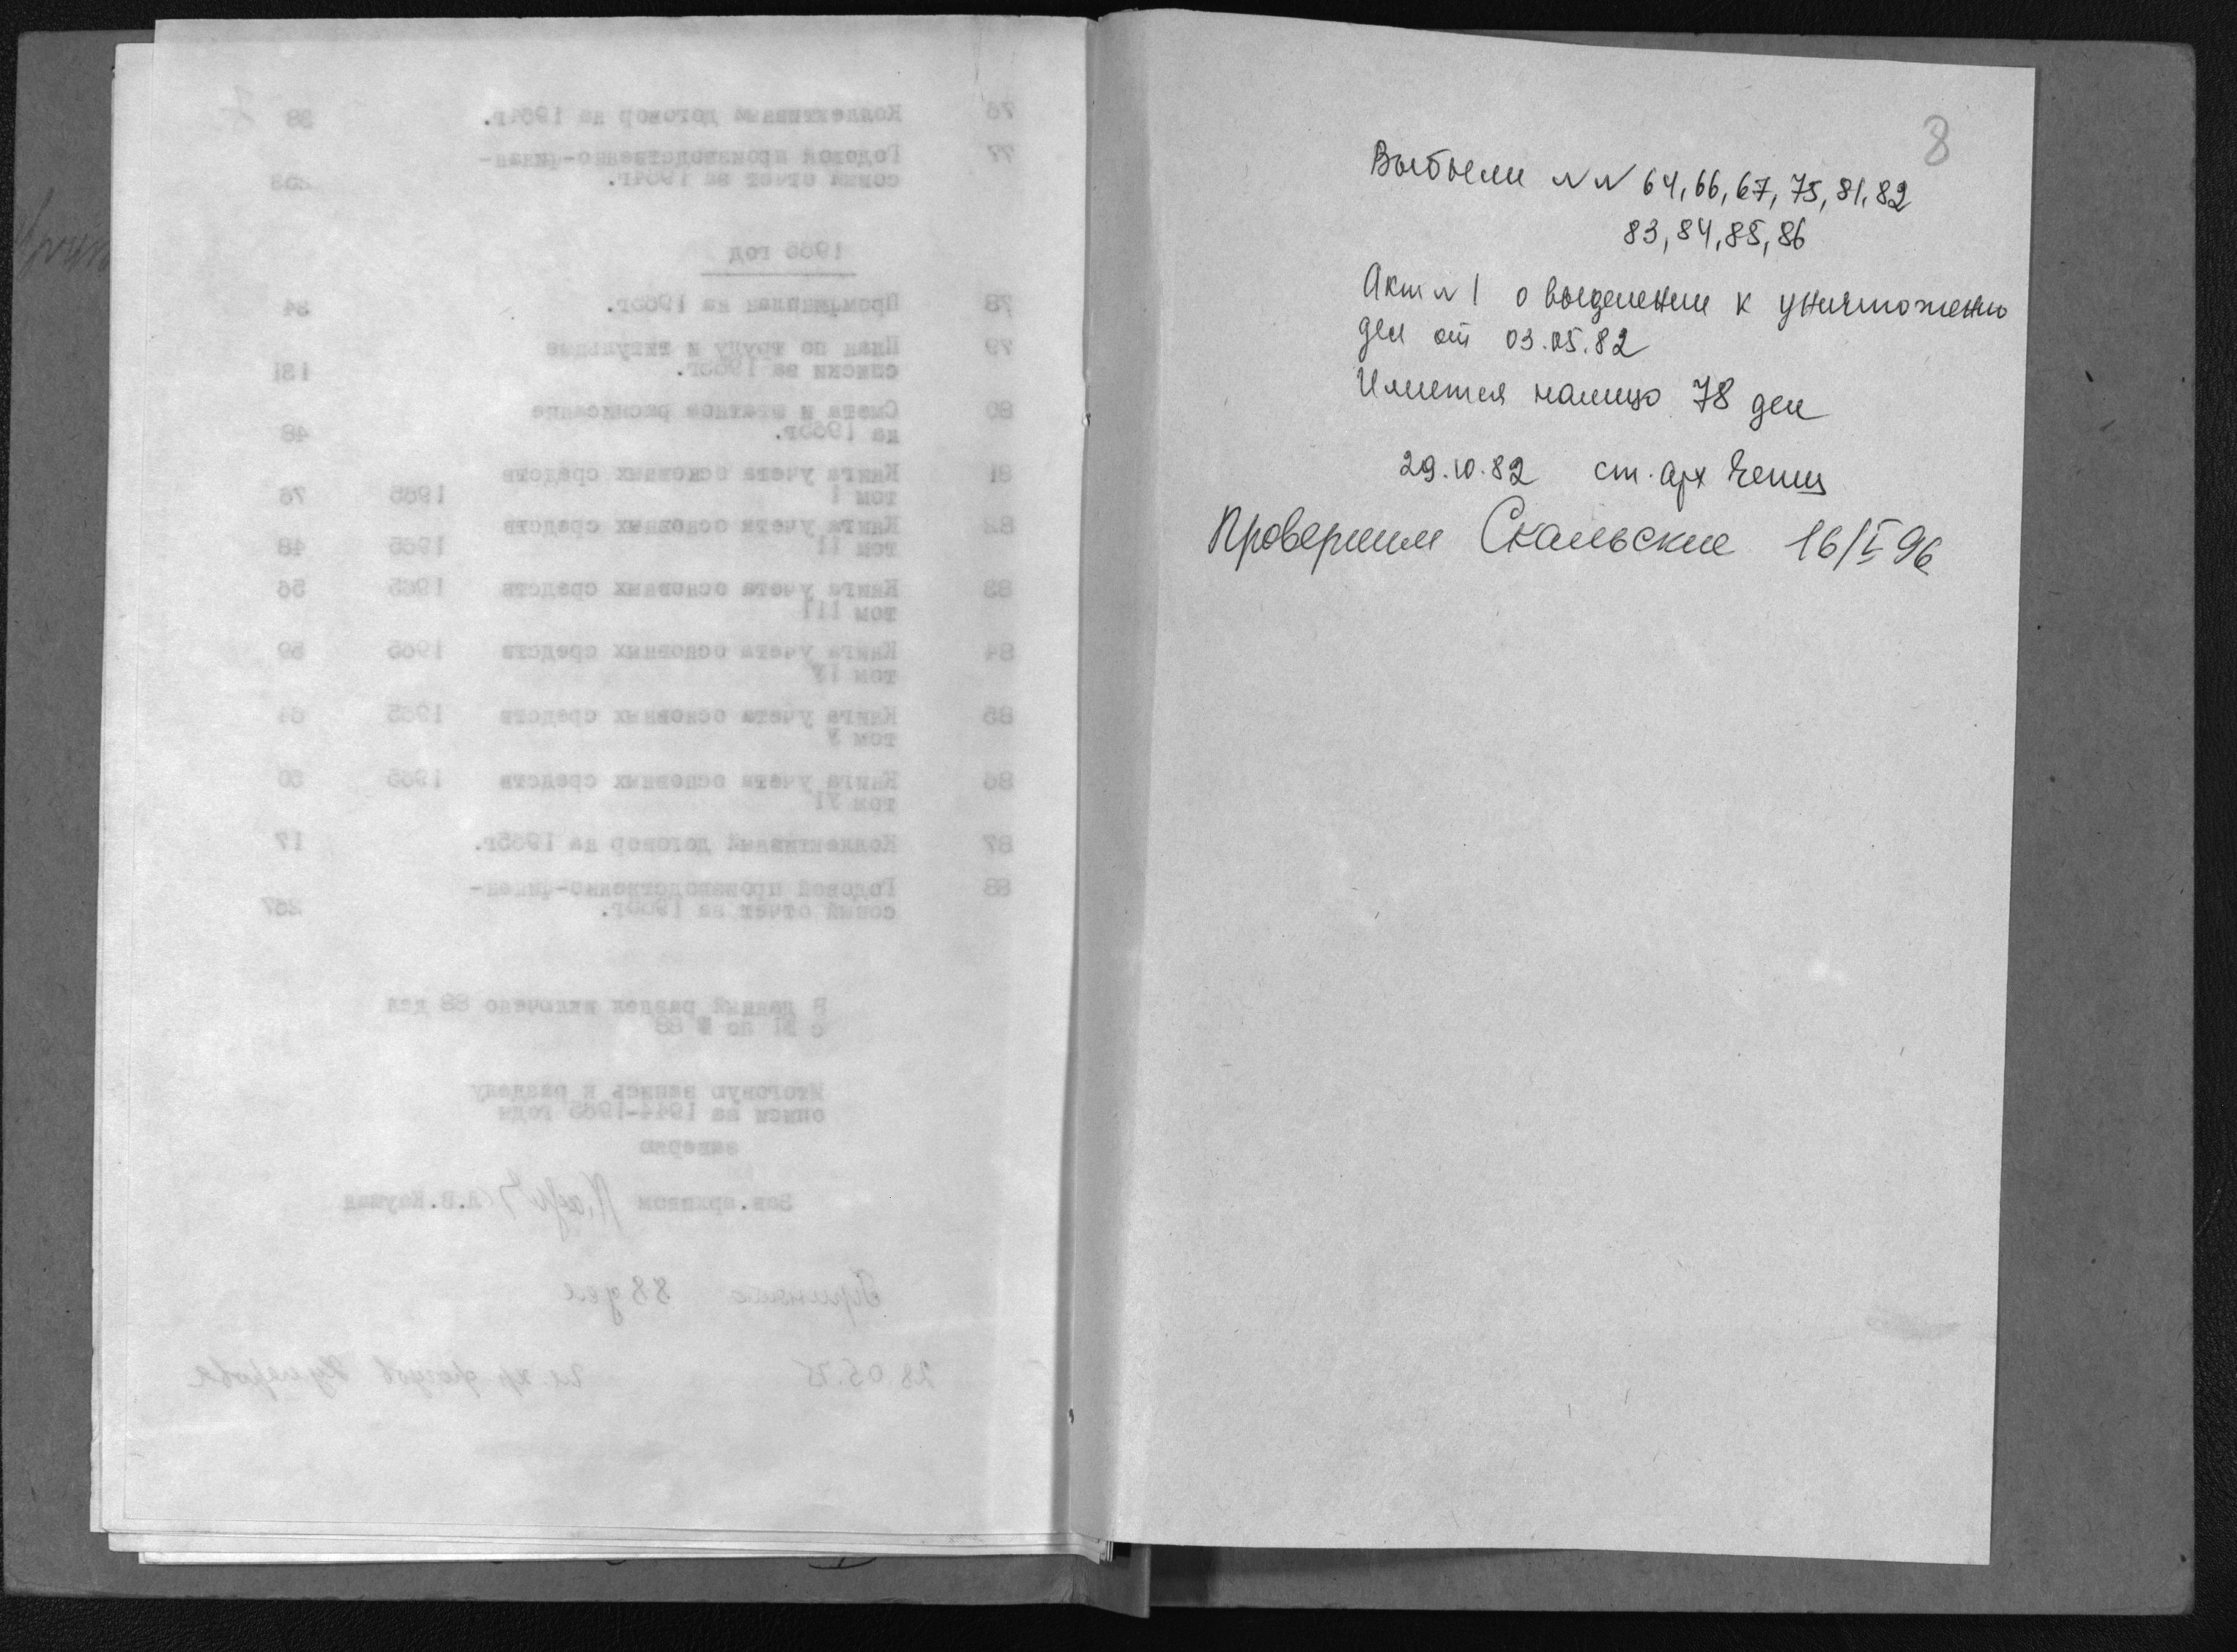 76 Коллективный договор на 1964г. 38
77 Годовой производственно-финан-
совый отчет за 1964г.
1965 год
78 Промфинплан на 1965г. 34
79 План по труду и титульные
списки за 1965г. 131
80 Смета и штатное расписание
на 1965г. 48
81 Книга учета основных средств
том I 1965 76
82 Книга учета основных средств
том II 1965 48
83 Книга учета основных средств 1965 56
том III
84 Книга учета основных средств 1965 59
том IУ
85 Книга учета основных средств 1965
том У
86 Книга учета основных средств 1965
том УI
87 Коллективный договор на 1965г. 17
88 Годовой производственно-финан-
совый отчет за 1965г. 267
В данный раздел включено 88 дел
с №1 по № 88
Итоговую запись к разделу
описи за 1944-1965 годы
заверяю
Зав.архивом
Принято 88 дел
28.05.75
8
Выбыли NN 64, 66, 67, 75, 81, 82
83, 84, 85, 86
Акт N 1 о выделении к уничтожению
дел от 03.05.82
Имеется налицо 78 дел
29.10.82 ст. арх
Проверили Скальские 16/I 96